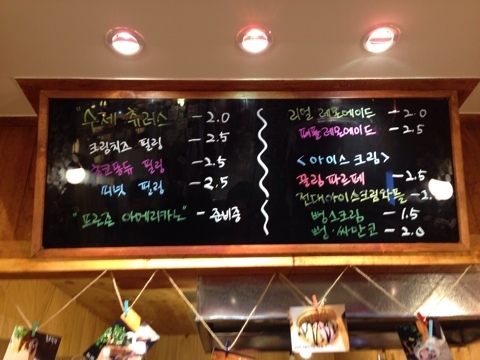 "수제" 츄러스 - 2.0
크림치즈 필링 - 2.5
초코퐁듀 필링 - 2.5
피넛 필링 - 2.5
"프로즌 아메리카노" - 준비중
리얼 레몬에이드 - 2.0
퍼플레몬에이드 - 2.5
<아이스 크림>
팥림파르페 - 2.5
전대아이스크림와플 - 2.
빵스크림 - 1.5
빵·싸만코 - 2.0